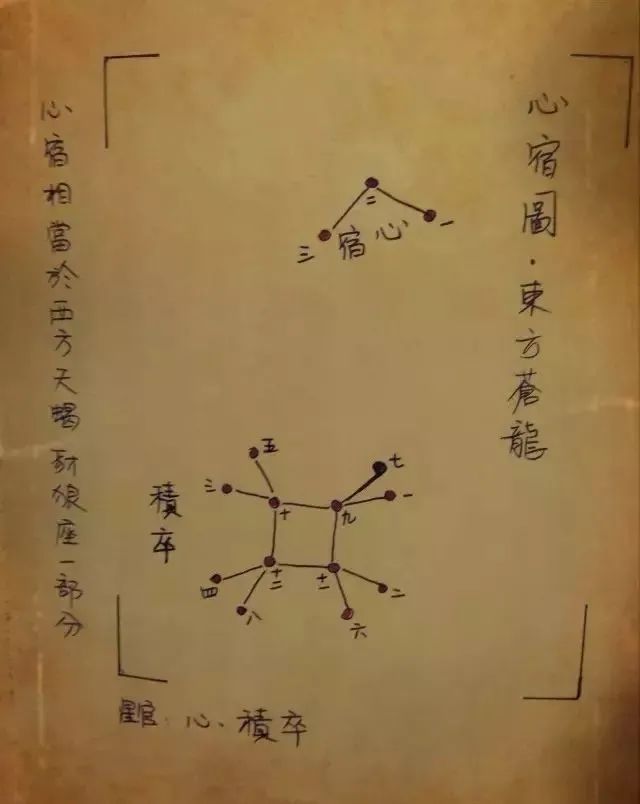 心宿圖·東方蒼龍
一
二
三
心宿
七
一
九
五
三
十
二
六
十一
四
八
十二
積卒
心宿相當於西方天蝎豺狼座一部分
星官：心、積卒